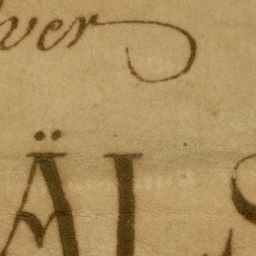 ver
ÄLS